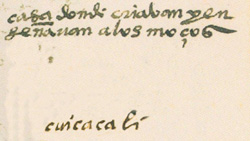 casa donde criavan y en
señavan a los moços
cuicacali